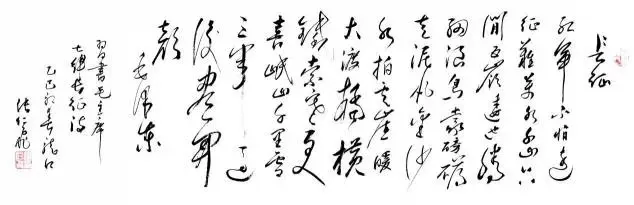 长征
红军不怕远
征难万水千山只
等闲五岭逶迤腾
细浪乌蒙磅礴
走泥丸金沙
水拍云崖暖
大渡桥横
铁索寒更
喜岷山千里雪
三军过
后尽开
颜
毛泽东
习书毛主席
七律长征诗
乙巳初春